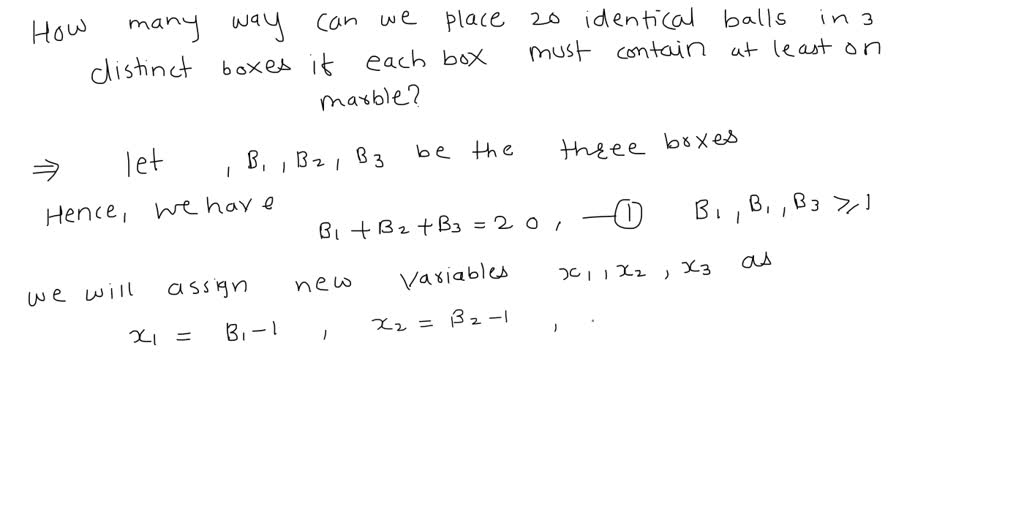 How many way can we place 20 identical balls in 3
distinct boxes if each box must contain at least on
marble?
⇒ let , B₁ , B₂ , B₃ be the three boxes
Hence, we have
B₁ + B₂ + B₃ = 20 , —① B₁ , B₁ , B₃ ⩾ 1
we will assign new variables x₁ , x₂ , x₃ as
x₁ = B₁ - 1 , x₂ = B₂ - 1 ,